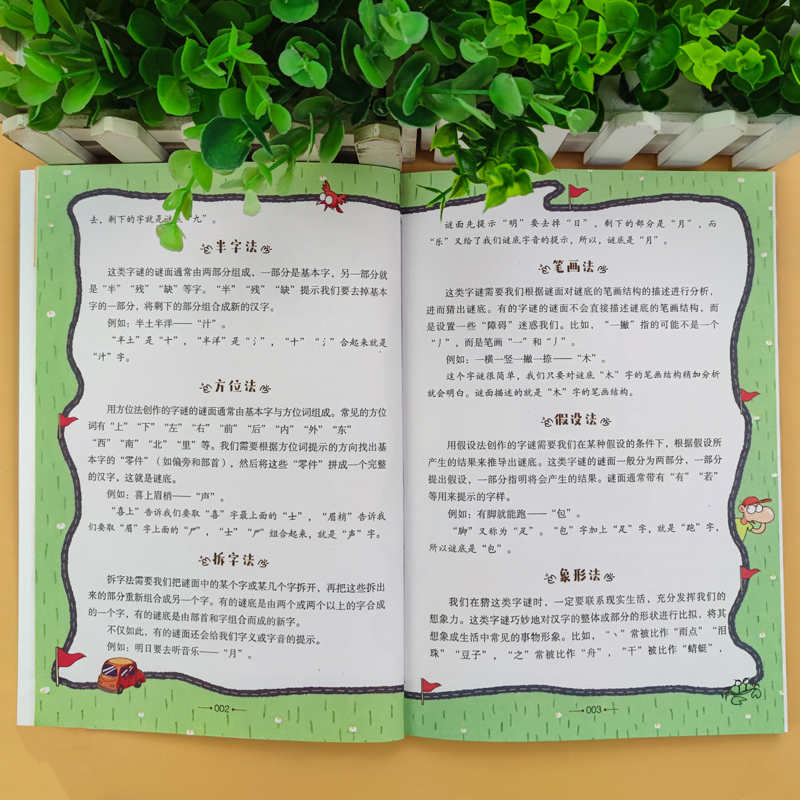 去，剩下的字就是谜底“九”。
半字法
这类字谜的谜面通常由两部分组成，一部分是基本字，另一部分就
是“半”“残”“缺”等字。“半”“残”“缺”提示我们要去掉基本
字的一部分，将剩下的部分组合成新的汉字。
例如：半土半洋——“汁”。
“半土”是“十”，“半洋”是“氵”，“十”“氵”合起来就是
“汁”字。
方位法
用方位法创作的字谜的谜面通常由基本字与方位词组成。常见的方位
词有“上”“下”“左”“右”“前”“后”“内”“外”“东”
“西”“南”“北”“里”等。我们需要根据方位词提示的方向找出基
本字的“零件”（如偏旁和部首），然后将这些“零件”拼成一个完整
的汉字，这就是谜底。
例如：喜上眉梢——“声”。
“喜上”告诉我们要取“喜”字最上面的“士”，“眉梢”告诉我
们要取“眉”字上面的“尸”，“士”“尸”组合起来，就是“声”字。
拆字法
拆字法需要我们把谜面中的某个字或某几个字拆开，再把这些拆出
来的部分重新组合成另一个字。有的谜底是由两个或两个以上的字合成
的一个字，有的谜底是由部首和字组合而成的新字。
不仅如此，有的谜面还会给我们字义或字音的提示。
例如：明日要去听音乐——“月”。
002
谜面先提示“明”要去掉“日”，剩下的部分是“月”，而
“乐”又给了我们谜底字音的提示，所以，谜底是“月”。
笔画法
这类字谜需要我们根据谜面对谜底的笔画结构的描述进行分析，
进而猜出谜底。有的字谜的谜面不会直接描述谜底的笔画结构，而
是设置一些“障碍”迷惑我们。比如，“一撇”指的可能不是一个
“丿”，而是笔画“一”和“丿”。
例如：一横一竖一撇一捺——“木”。
这个字谜很简单，我们只要对谜底“木”字的笔画结构稍加分析
就会明白。谜面描述的就是“木”字的笔画结构。
假设法
用假设法创作的字谜需要我们在某种假设的条件下，根据假设所
产生的结果来推导出谜底。这类字谜的谜面一般分为两部分，一部分
提出假设，一部分指明将会产生的结果。谜面通常带有“有”“若”
等用来提示的字样。
例如：有脚就能跑——“包”。
“脚”又称为“足”。“包”字加上“足”字，就是“跑”字，
所以谜底是“包”。
象形法
我们在猜这类字谜时，一定要联系现实生活，充分发挥我们的
想象力。这类字谜巧妙地对汉字的整体或部分的形状进行比拟，将其
想象成生活中常见的事物形象。比如，“丶”常被比作“雨点”“泪
珠”“豆子”，“之”常被比作“舟”，“干”被比作“蜻蜓”，
003